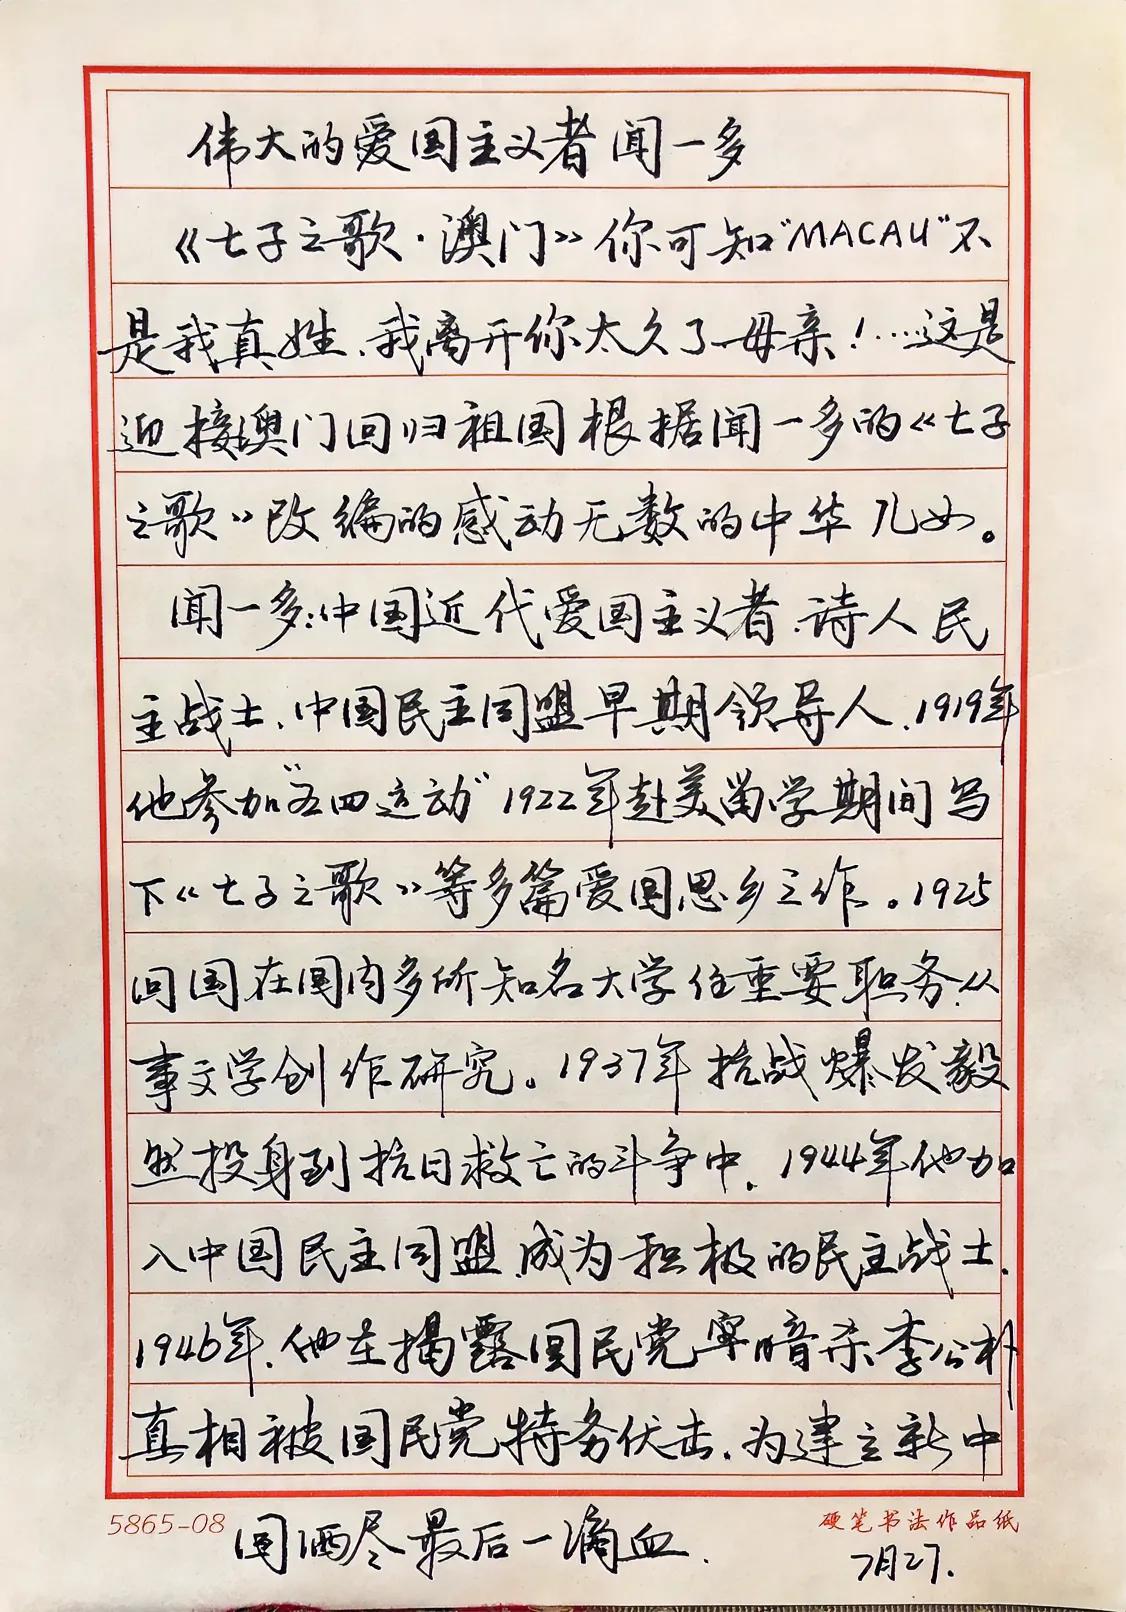 伟大的爱国主义者闻一多
《七子之歌·澳门》你可知"MACAU"不
是我真姓、我离开你太久了母亲！…这是
迎接澳门回归祖国根据闻一多的《七子
之歌》改编的感动无数的中华儿女。
闻一多:中国近代爱国主义者、诗人民
主战士、中国民主同盟早期领导人、1919年
他参加"五四运动"1922年赴美留学期间写
下《七子之歌》等多篇爱国思乡之作。1925
回国在国内多所知名大学任重要职务、从
事文学创作研究。1937年抗战爆发毅
然投身到抗日救亡的斗争中、1944年他加
入中国民主同盟、成为积极的民主战士、
1946年、他在揭露国民党暗杀李公朴
真相被国民党特务伏击、为建立新中
国洒尽最后一滴血、
5865-08
硬笔书法作品纸
7月27.